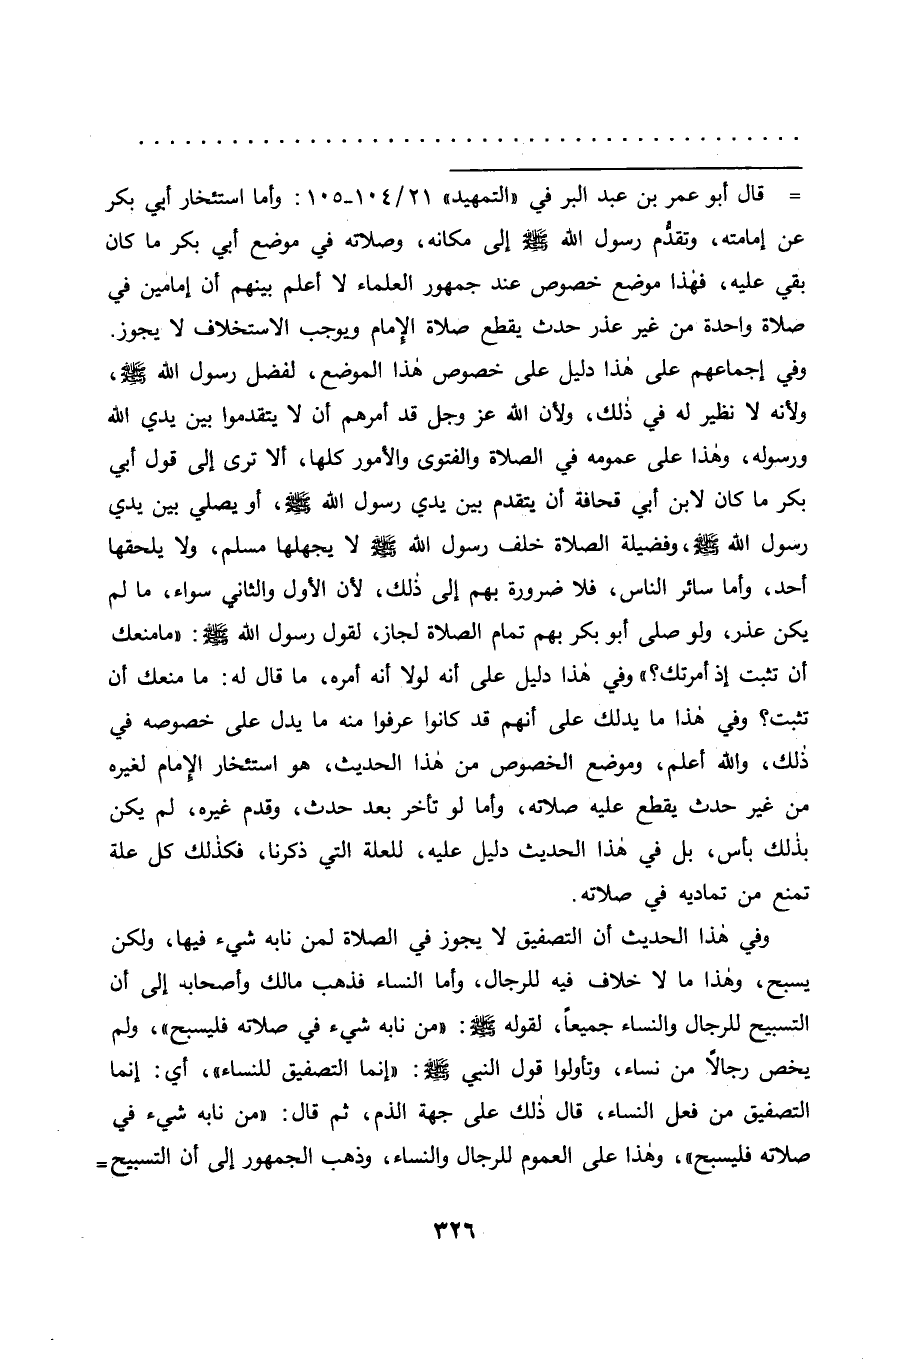 . . . . . . . . . . . . . . . . . . . . . . . . . . . . . . . . . . . . . . . . . . .
= قال أبو عمر بن عبد البر في «التمهيد» ٢١/ ١٠٤-١٠٥: وأما استئخار أبي بكر
عن إمامته، وتقدُّم رسول الله ﷺ إلى مكانه، وصلاته في موضع أبي بكر ما كان
بقي عليه، فهٰذا موضع خصوص عند جمهور العلماء لا أعلم بينهم أن إمامين في
صلاة واحدة من غير عذر حدث يقطع صلاة الإمام ويوجب الاستخلاف لا يجوز.
وفي إجماعهم على هٰذا دليل على خصوص هٰذا الموضع، لفضل رسول الله ﷺ،
ولأنه لا نظير له في ذٰلك، ولأن الله عز وجل قد أمرهم أن لا يتقدموا بين يدي الله
ورسوله، وهٰذا على عمومه في الصلاة والفتوى والأمور كلها، ألا ترى إلى قول أبي
بكر ما كان لابن أبي قحافة أن يتقدم بين يدي رسول الله ﷺ، أو يصلي بين يدي
رسول الله ﷺ، وفضيلة الصلاة خلف رسول الله ﷺ لا يجهلها مسلم، ولا يلحقها
أحد، وأما سائر الناس، فلا ضرورة بهم إلى ذٰلك، لأن الأول والثاني سواء، ما لم
يكن عذر، ولو صلى أبو بكر بهم تمام الصلاة لجاز، لقول رسول الله ﷺ: «مامنعك
أن تثبت إذ أمرتك؟» وفي هٰذا دليل على أنه لولا أنه أمره، ما قال له: ما منعك أن
تثبت؟ وفي هٰذا ما يدلك على أنهم قد كانوا عرفوا منه ما يدل على خصوصه في
ذٰلك، والله أعلم، وموضع الخصوص من هٰذا الحديث، هو استئخار الإمام لغيره
من غير حدث يقطع عليه صلاته، وأما لو تأخر بعد حدث، وقدم غيره، لم يكن
بذٰلك بأس، بل في هٰذا الحديث دليل عليه، للعلة التي ذكرنا، فكذٰلك كل علة
تمنع من تماديه في صلاته.
وفي هٰذا الحديث أن التصفيق لا يجوز في الصلاة لمن نابه شيء فيها، ولكن
يسبح، وهٰذا ما لا خلاف فيه للرجال، وأما النساء فذهب مالك وأصحابه إلى أن
التسبيح للرجال والنساء جميعاً، لقوله ﷺ: «من نابه شيء في صلاته فليسبح»، ولم
يخص رجالاً من نساء، وتأولوا قول النبي ﷺ: «إنما التصفيق للنساء»، أي: إنما
التصفيق من فعل النساء، قال ذٰلك على جهة الذم، ثم قال: «من نابه شيء في
صلاته فليسبح»، وهٰذا على العموم للرجال والنساء، وذهب الجمهور إلى أن التسبيح=
٣٢٦